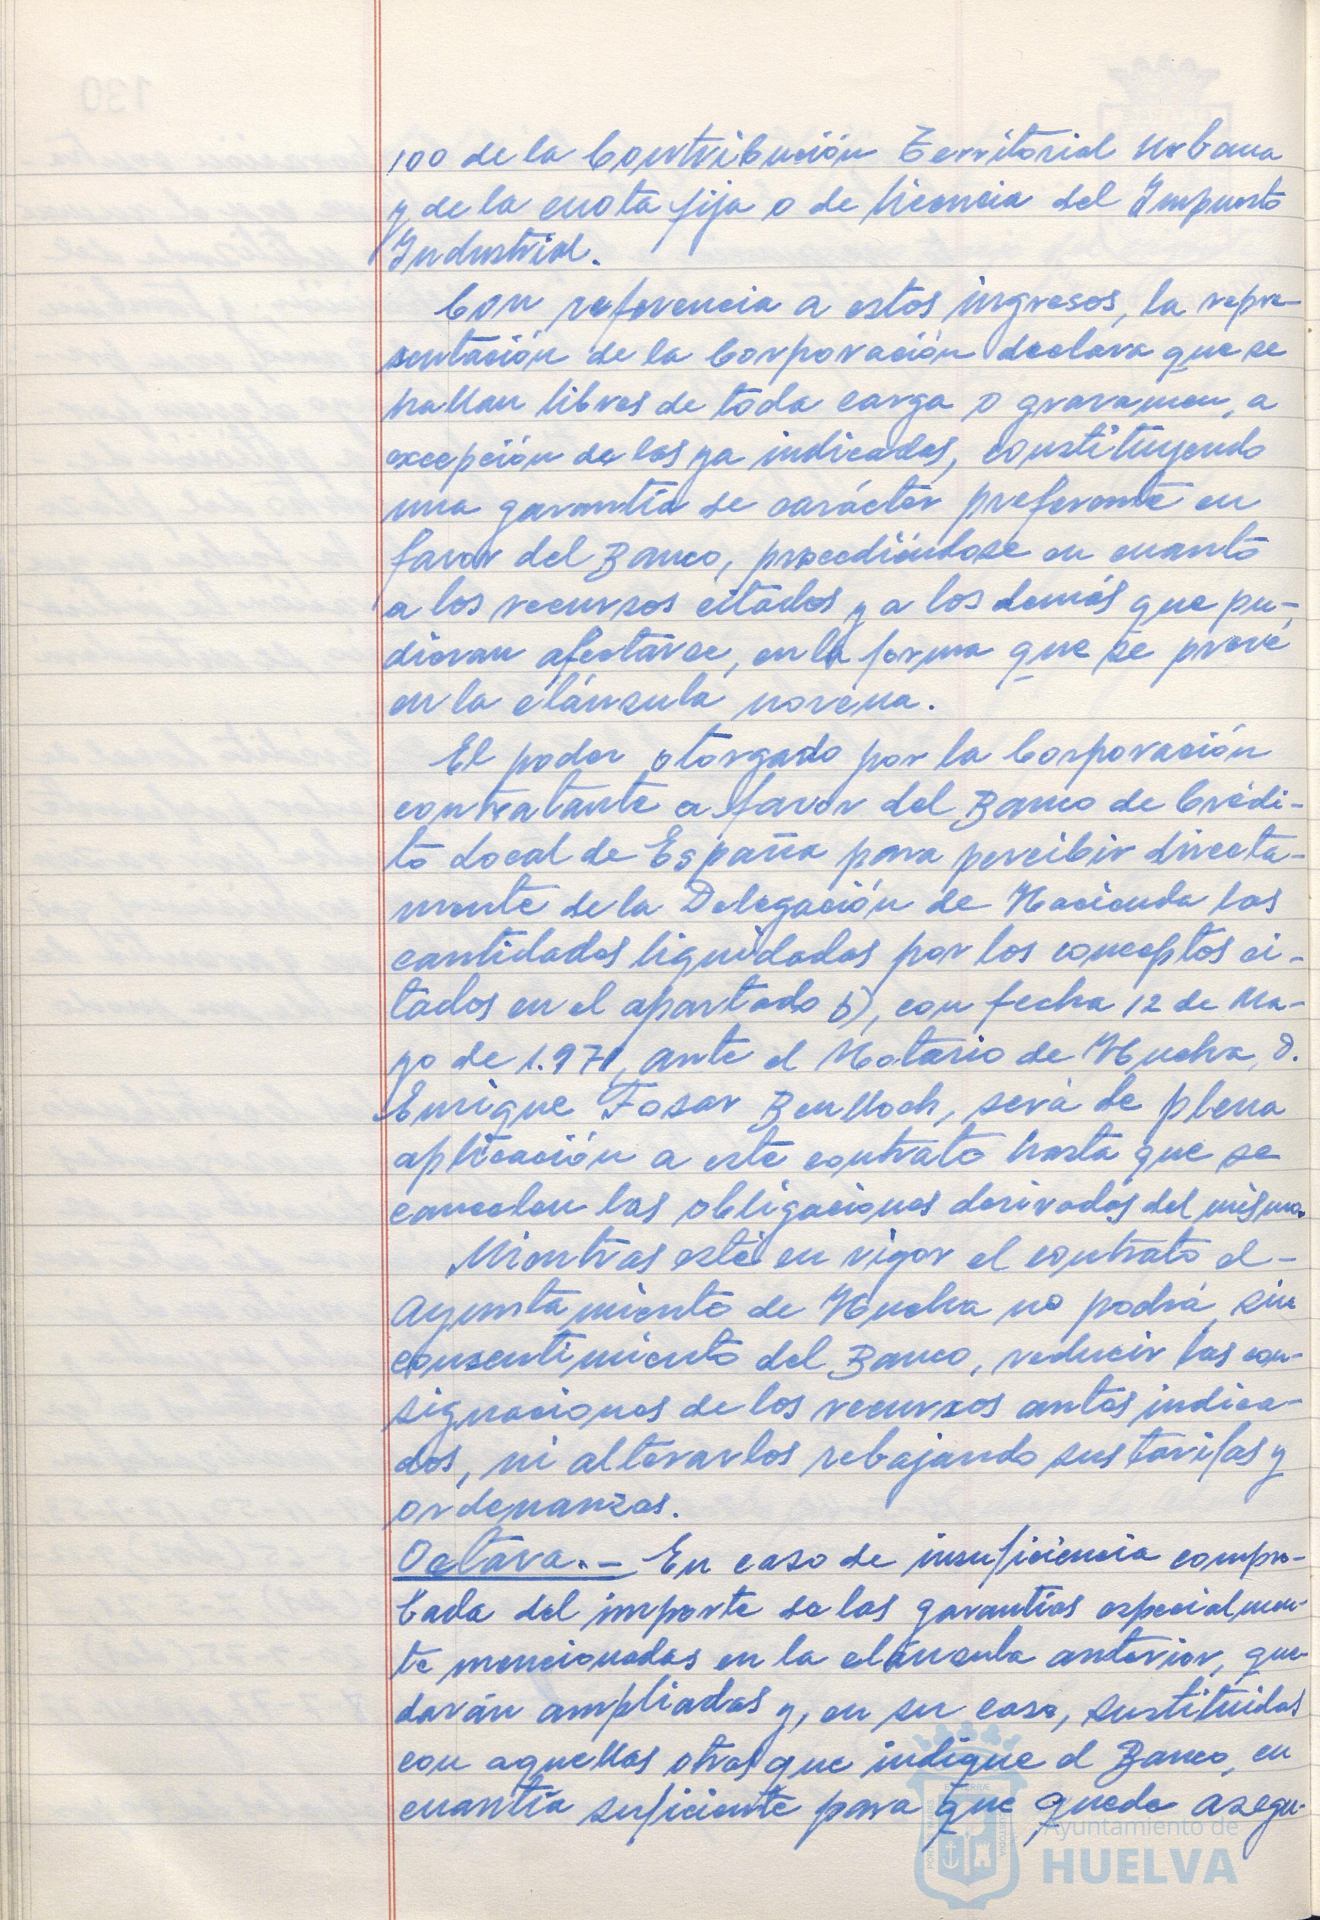 100 de la Contribución Territorial Urbana
y de la cuota fija o de licencia del Impuesto
Industrial.
Con referencia a estos ingresos, la repre-
sentación de la Corporación declara que se
hallan libres de toda carga o gravamen, a
excepción de las ya indicadas, constituyendo
una garantía de carácter preferente en
favor del Banco, procediéndose en cuanto
a los recursos citados y a los demás que pu-
dieran afectarse, en la forma que se prevé
en la cláusula novena.
El poder otorgado por la Corporación
contratante a favor del Banco de Crédi-
to Local de España para percibir directa-
mente de la Delegación de Hacienda las
cantidades liquidadas por los conceptos ci-
tados en el apartado b), con fecha 12 de Ma-
yo de 1.971, ante el Notario de Huelva, D.
Enrique Fosar Benlloch, será de plena
aplicación a este contrato hasta que se
cancelen las obligaciones derivadas del mismo.
Mientras esté en vigor el contrato el-
Ayuntamiento de Huelva no podrá, sin
consentimiento del Banco, reducir las con-
signaciones de los recursos antes indica-
dos, ni alterarlos rebajando sus tarifas y
ordenanzas.
Octava.- En caso de insuficiencia compro-
bada del importe de las garantías especialmen-
te mencionadas en la cláusula anterior, que-
darán ampliadas y, en su caso, sustituidas
con aquellas otras que indique el Banco, en
cuantía suficiente para que quede asegu-
Ayuntamiento de
HUELVA